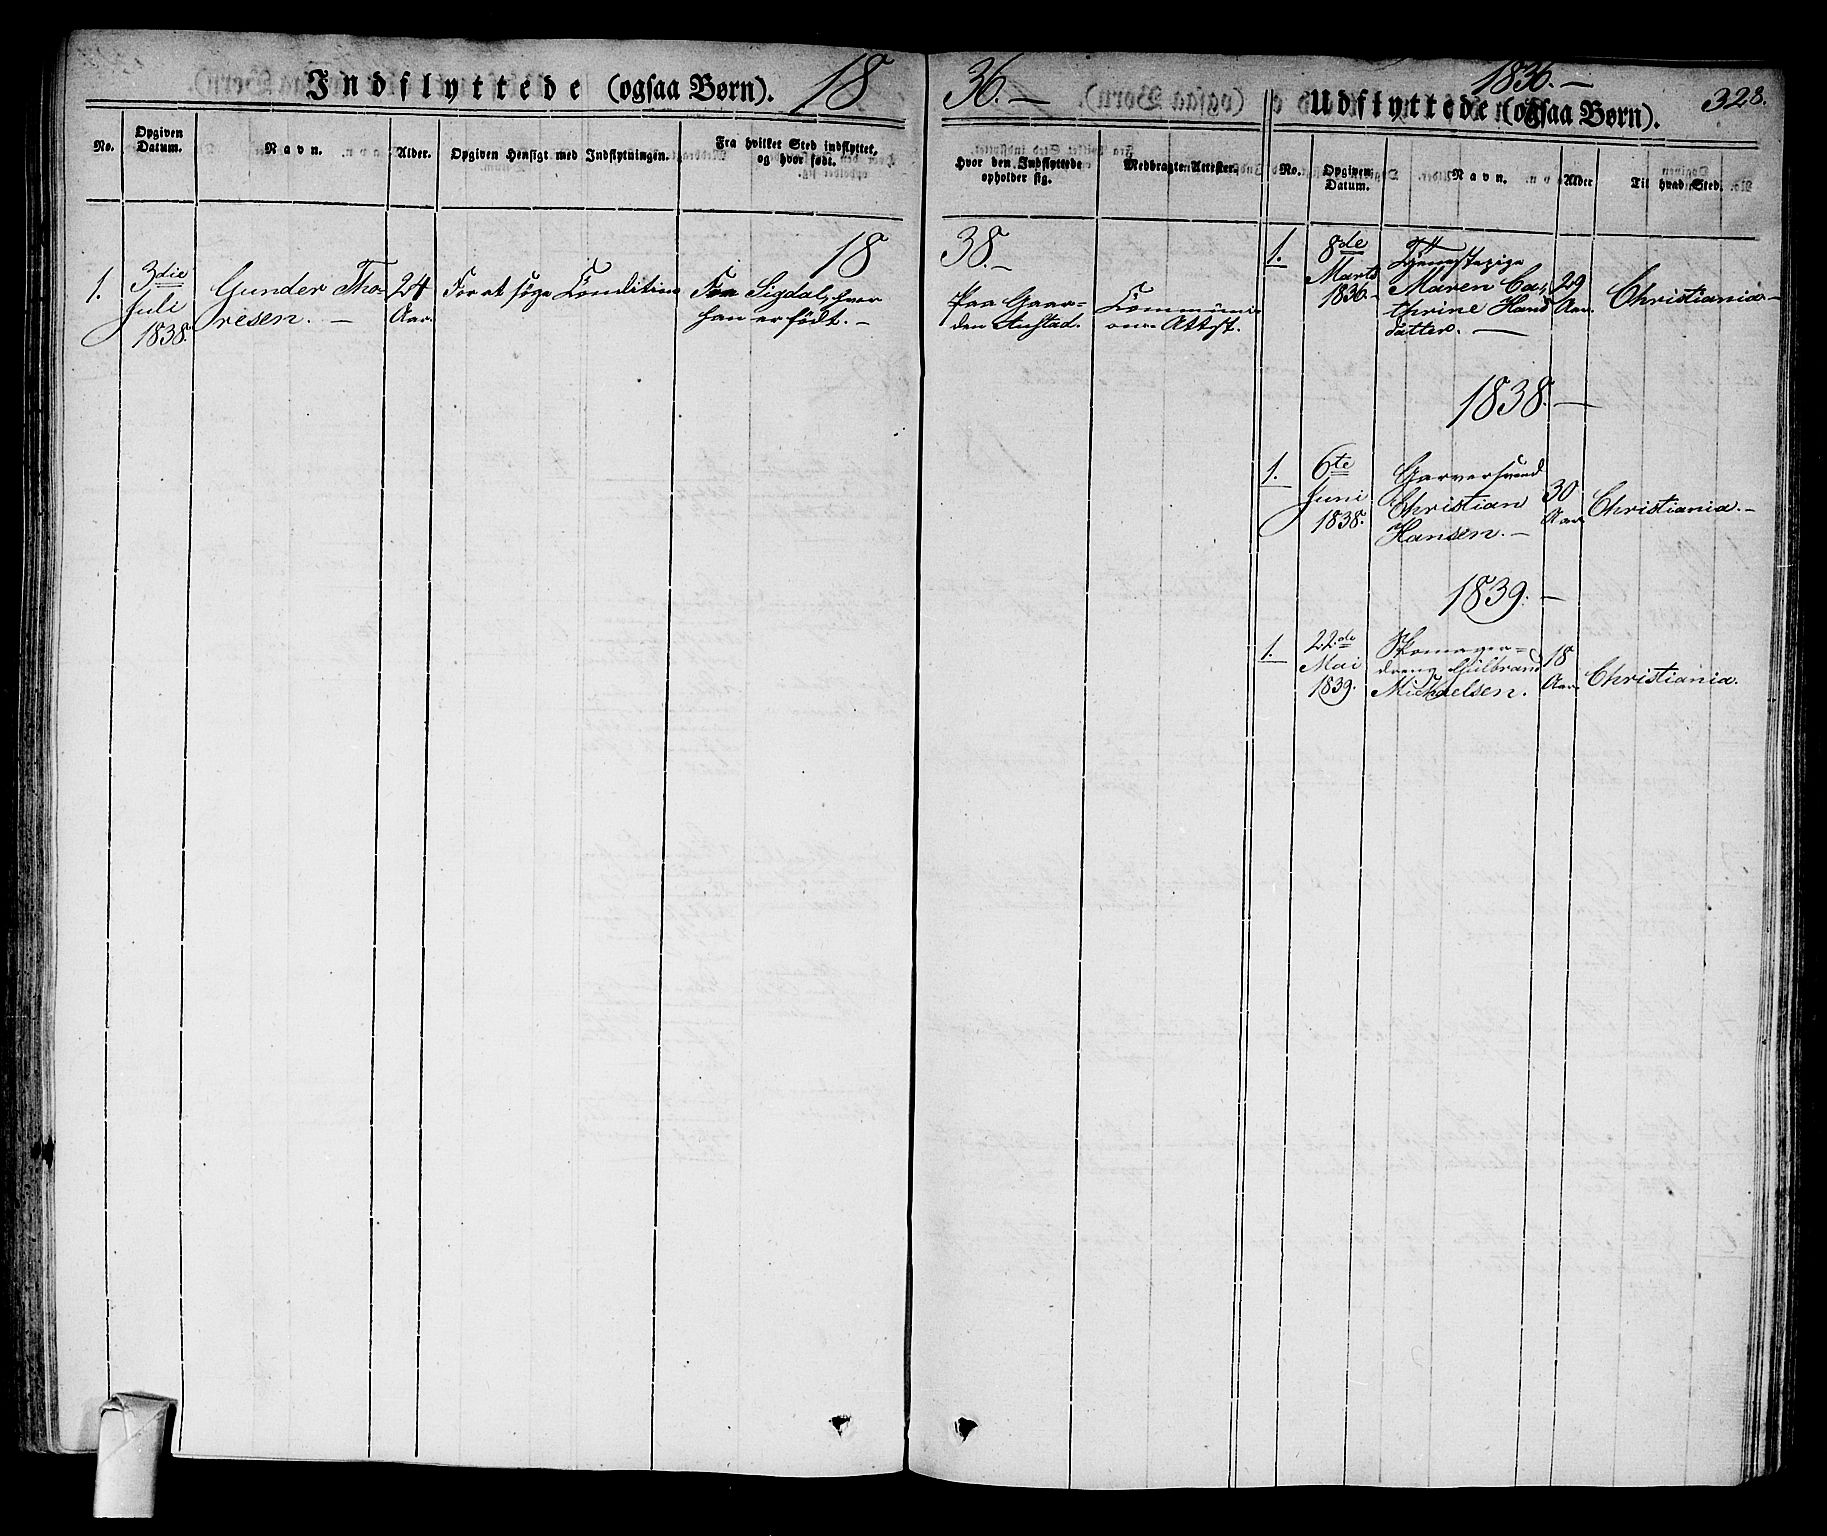 Indflyttede (ogsaa Børn). 18
No.
Opgiven Datum.
Navn.
Alder.
Opgiven Hensigt med Indflytningen.
Fra hvilket Sted indflyttet, og hvor født.
18
1.
3die Juli 1838.
Gunder Tho-
resen. —
24 Aar.
For at søge Condition
Fra Sigdal, hvor
han er født. —
36. —
Hvor den Indflyttede opholder sig.
Medbragte Attester.
38. —
Paa Gaar-
den
Communi-
ons Attest.
1836. —
Udflyttede (ogsaa Børn).
328.
No.
Opgiven Datum.
Navn.
Alder
Til hvad Sted.
1.
8de Marts 1836. —
Tjenestepige
Maren Ca-
thrine Hans
datter. —
29 Aar.
Christiania —
1838. —
1.
6te Juni 1838.
Garversvend
Christian
Hansen. —
30 Aar.
Christiania. —
1839. —
1.
22de Mai 1839.
Skomager-
dreng Gulbrand
Michaelsen.
18 Aar.
Christiania.